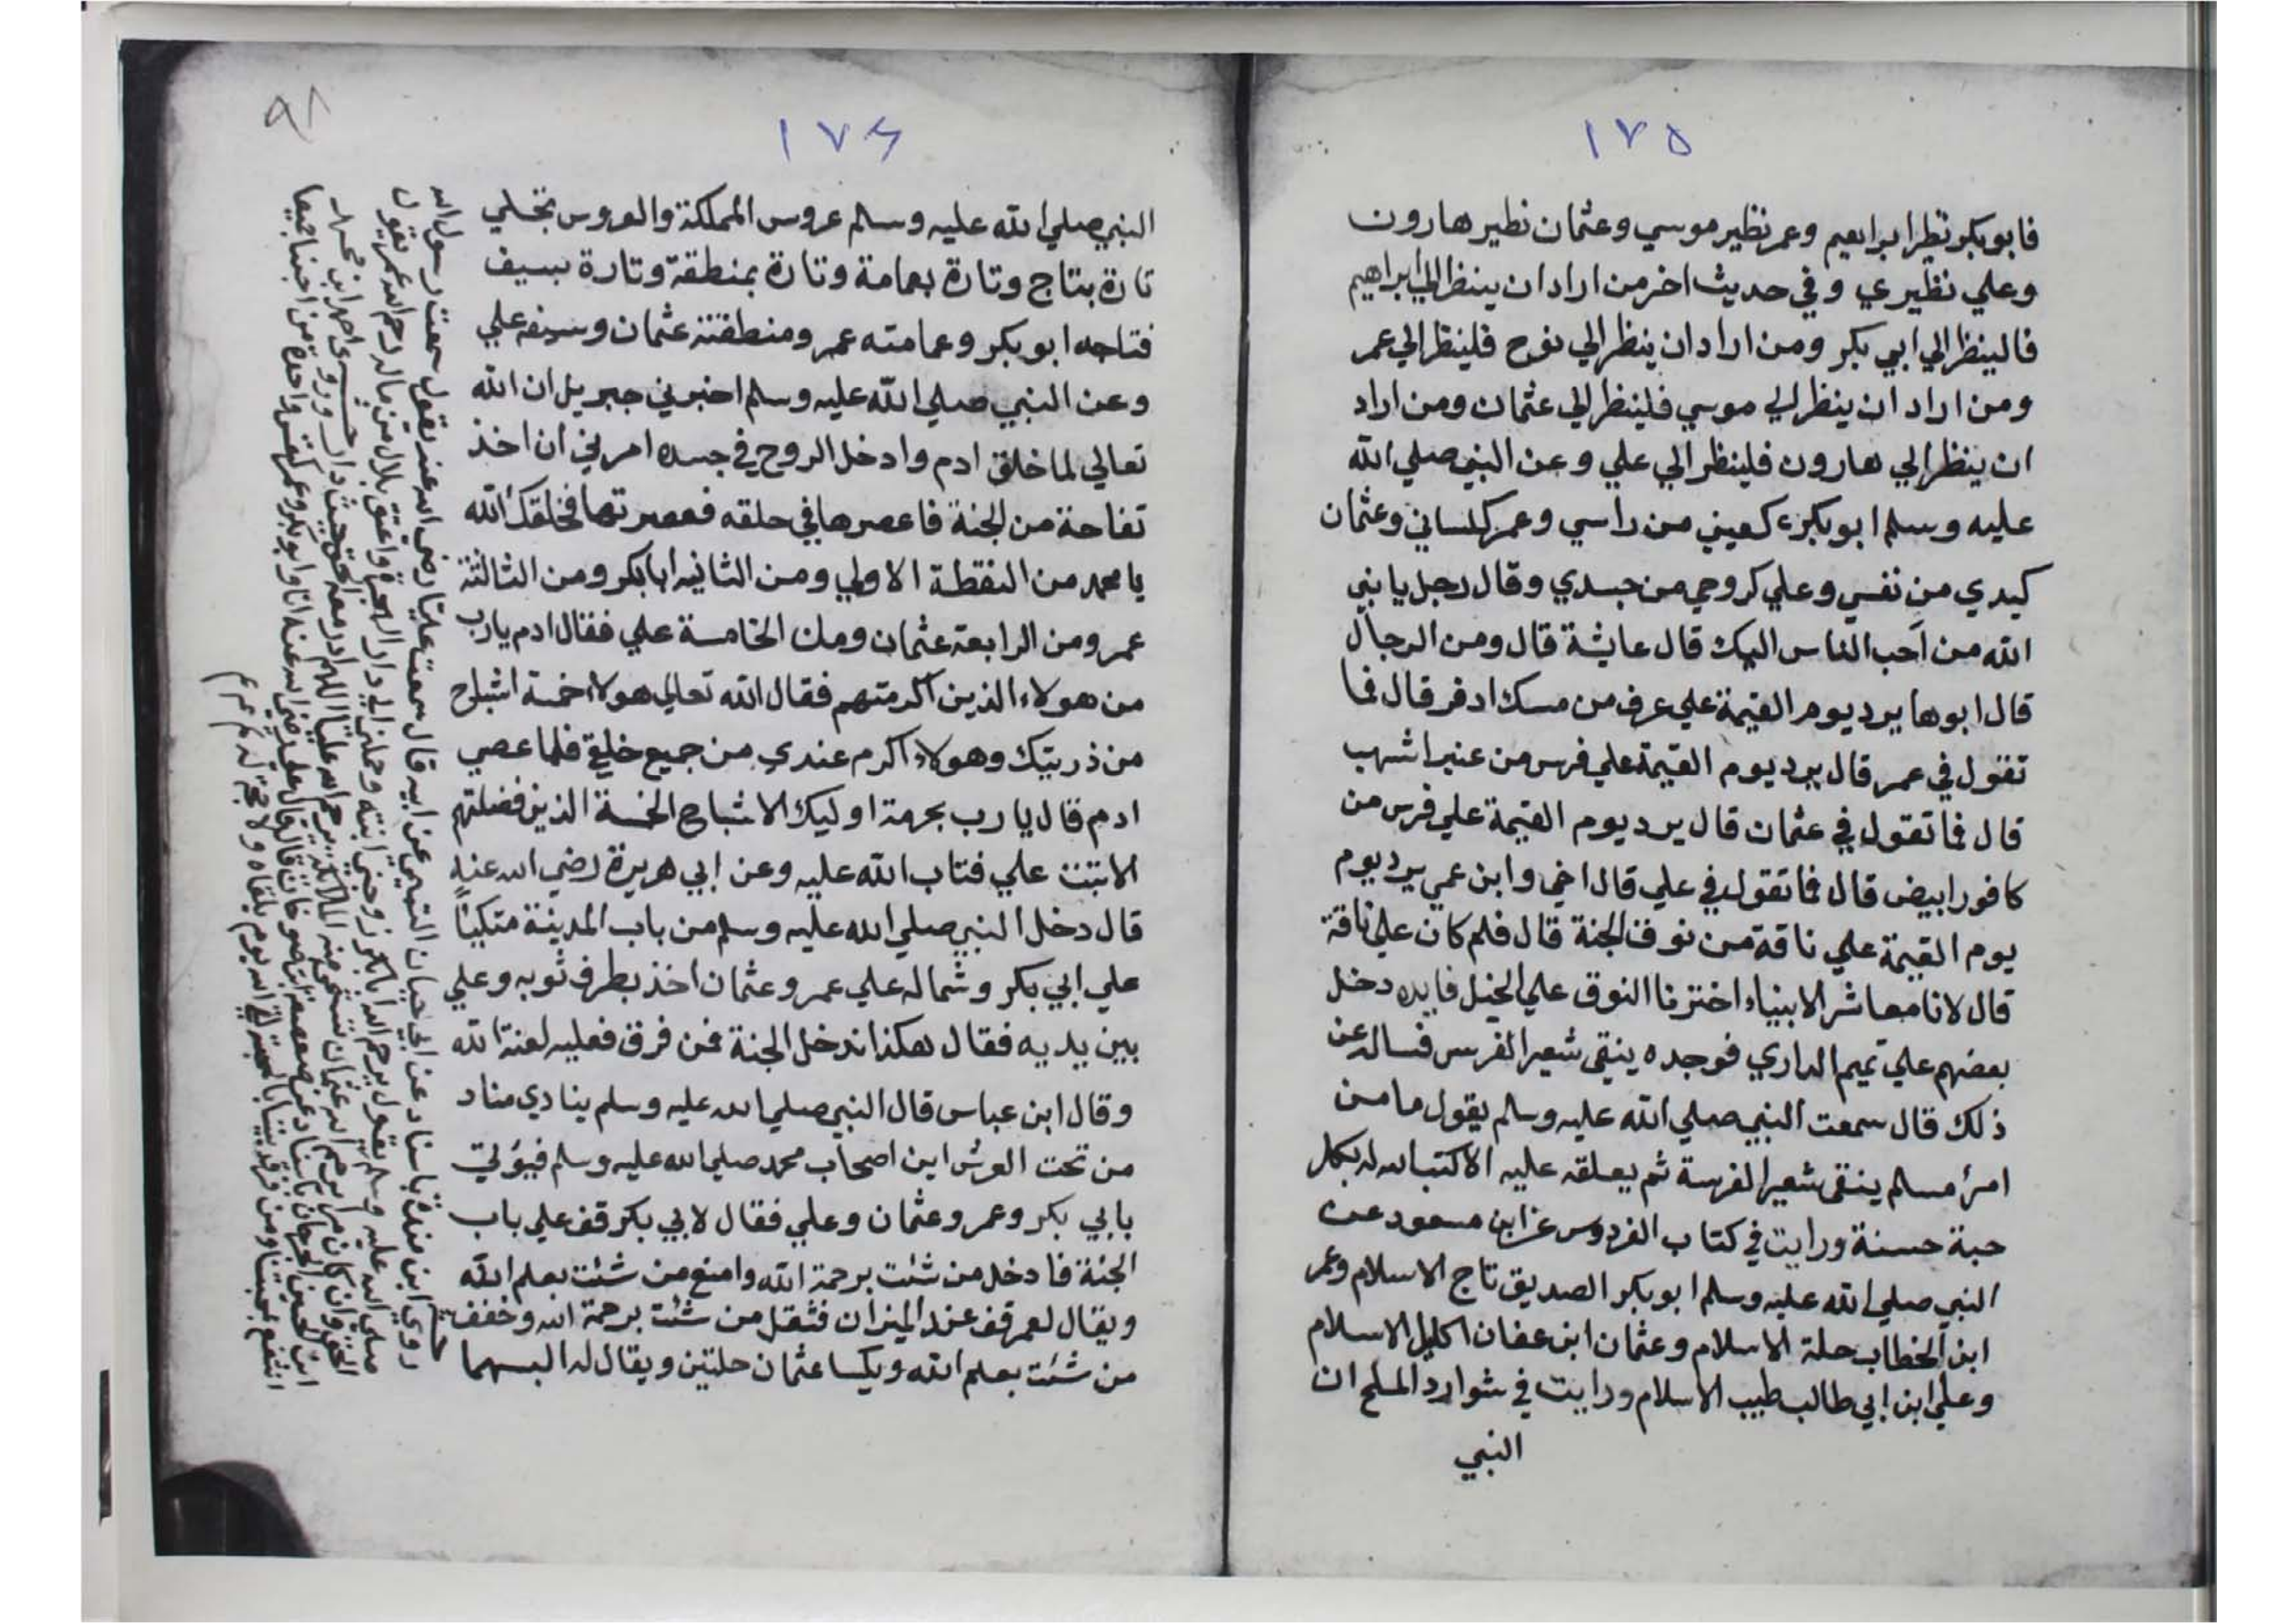 ١٧٥
فابو بكر نظير ابراهيم وعمر نظير موسي وعثمان نظير هارون
وعلي نظيري وفي حديث اخر من اراد ان ينظر الي ابراهيم
فالينظر الي ابي بكر ومن اراد ان ينظر الي نوح فلينظر الي عمر
ومن اراد ان ينظر الي موسي فلينظر الي عثمان ومن اراد
ان ينظر الي هارون فلينظر الي علي وعن النبي صلي الله
عليه وسلم ابو بكر كعيني من راسي وعمر كلساني وعثمان
كيدي من نفسي وعلي كروحي من جسدي وقال رجل يا نبي
الله من آحب الناس اليك قال عايشة قال ومن الرجال
قال ابوها يرد يوم القيمة علي عرف من مسك ادفر قال فما
تقول في عمر قال يرد يوم القيمة علي فرس من عنبر اشهب
قال فما تقول في عثمان قال يرد يوم القيمة علي فرس من
كافور ابيض قال فما تقول في علي قال اخي وابن عمي يرد يوم
يوم القيمة علي ناقة من نوق الجنة قال فلم كان علي ناقة
قال لانا معاشر الانبياء اخترنا النوق علي الخيل فايده دخل
بعضهم علي تميم الداري فوجده ينقي شعير الفرس فساله عن
ذلك قال سمعت النبي صلي الله عليه وسلم يقول ما من
امرئ مسلم ينقي شعير الفرسة ثم يعلقه عليه الا كتب الله له بكل
حبة حسنة ورايت في كتاب الفردوس عن ابن مسعود عن
النبي صلي الله عليه وسلم ابو بكر الصديق تاج الاسلام وعمر
ابن الخطاب حلة الاسلام وعثمان ابن عفان اكليل الاسلام
وعلي ابن ابي طالب طيب الاسلام ورايت في شوارد الملح ان
النبي
١٧٦
٩٨
النبي صلي الله عليه وسلم عروس المملكة والعروس تجلي
تارة بتاج وتارة بعمامة وتارة بمنطقة وتارة بسيف
فتاجه ابو بكر وعمامته عمر ومنطقته عثمان وسيفه علي
وعن النبي صلي الله عليه وسلم اخبرني جبريل ان الله
تعالي لما خلق ادم وادخل الروح في جسده امرني ان اخذ
تفاحة من الجنة فاعصرها في حلقه فعصرتها فخلقك الله
يا محمد من النقطة الاولي ومن الثانيه ابا بكر ومن الثالثة
عمر ومن الرابعة عثمان ومن الخامسة علي فقال ادم يارب
من هولاء الذين اكرمتهم فقال الله تعالي هولاء خمسة اشباح
من ذريتك وهولاء اكرم عندي من جميع خلقي فلما عصي
ادم قال يا رب بحرمة اوليك الاشباح الخمسة الذين فضلتهم
الا تبت علي فتاب الله عليه وعن ابي هريرة رضي الله عنه
قال دخل النبي صلي الله عليه وسلم من باب المدينة متكيًا
علي ابي بكر وشماله علي عمر وعثمان اخذ بطرف ثوبه وعلي
بين يديه فقال هكذا ندخل الجنة فمن فرق فعليه لعنة الله
وقال ابن عباس قال النبي صلي الله عليه وسلم ينادي مناد
من تحت العرش اين اصحاب محمد صلي الله عليه وسلم فيؤتي
بابي بكر وعمر وعثمان وعلي فقال لابي بكر قف علي باب
الجنة فادخل من شئت برحمة الله وامنع من شئت بعلم الله
ويقال لعمر قف عند الميزان فثقل من شئت برحمة الله وخفف
من شئت بعلم الله ويكسا عثمان حلتين ويقال له البسهما
روي ابن منده باسناد عن ابي حيان التيمي عن ابيه قال سمعت عليا رضي الله عنه يقول سمعت رسول الله
صلي الله عليه وسلم يقول يرحم الله ابا بكر زوجني ابنته وحملني الي دار الهجرة واعتق بلال من ماله رحم الله عمر يقول
الحق وان كان مرا يرحم الله عثمان تستحي منه الملائكة يرحم الله عليا اللهم ادر معه الحق حيث دار